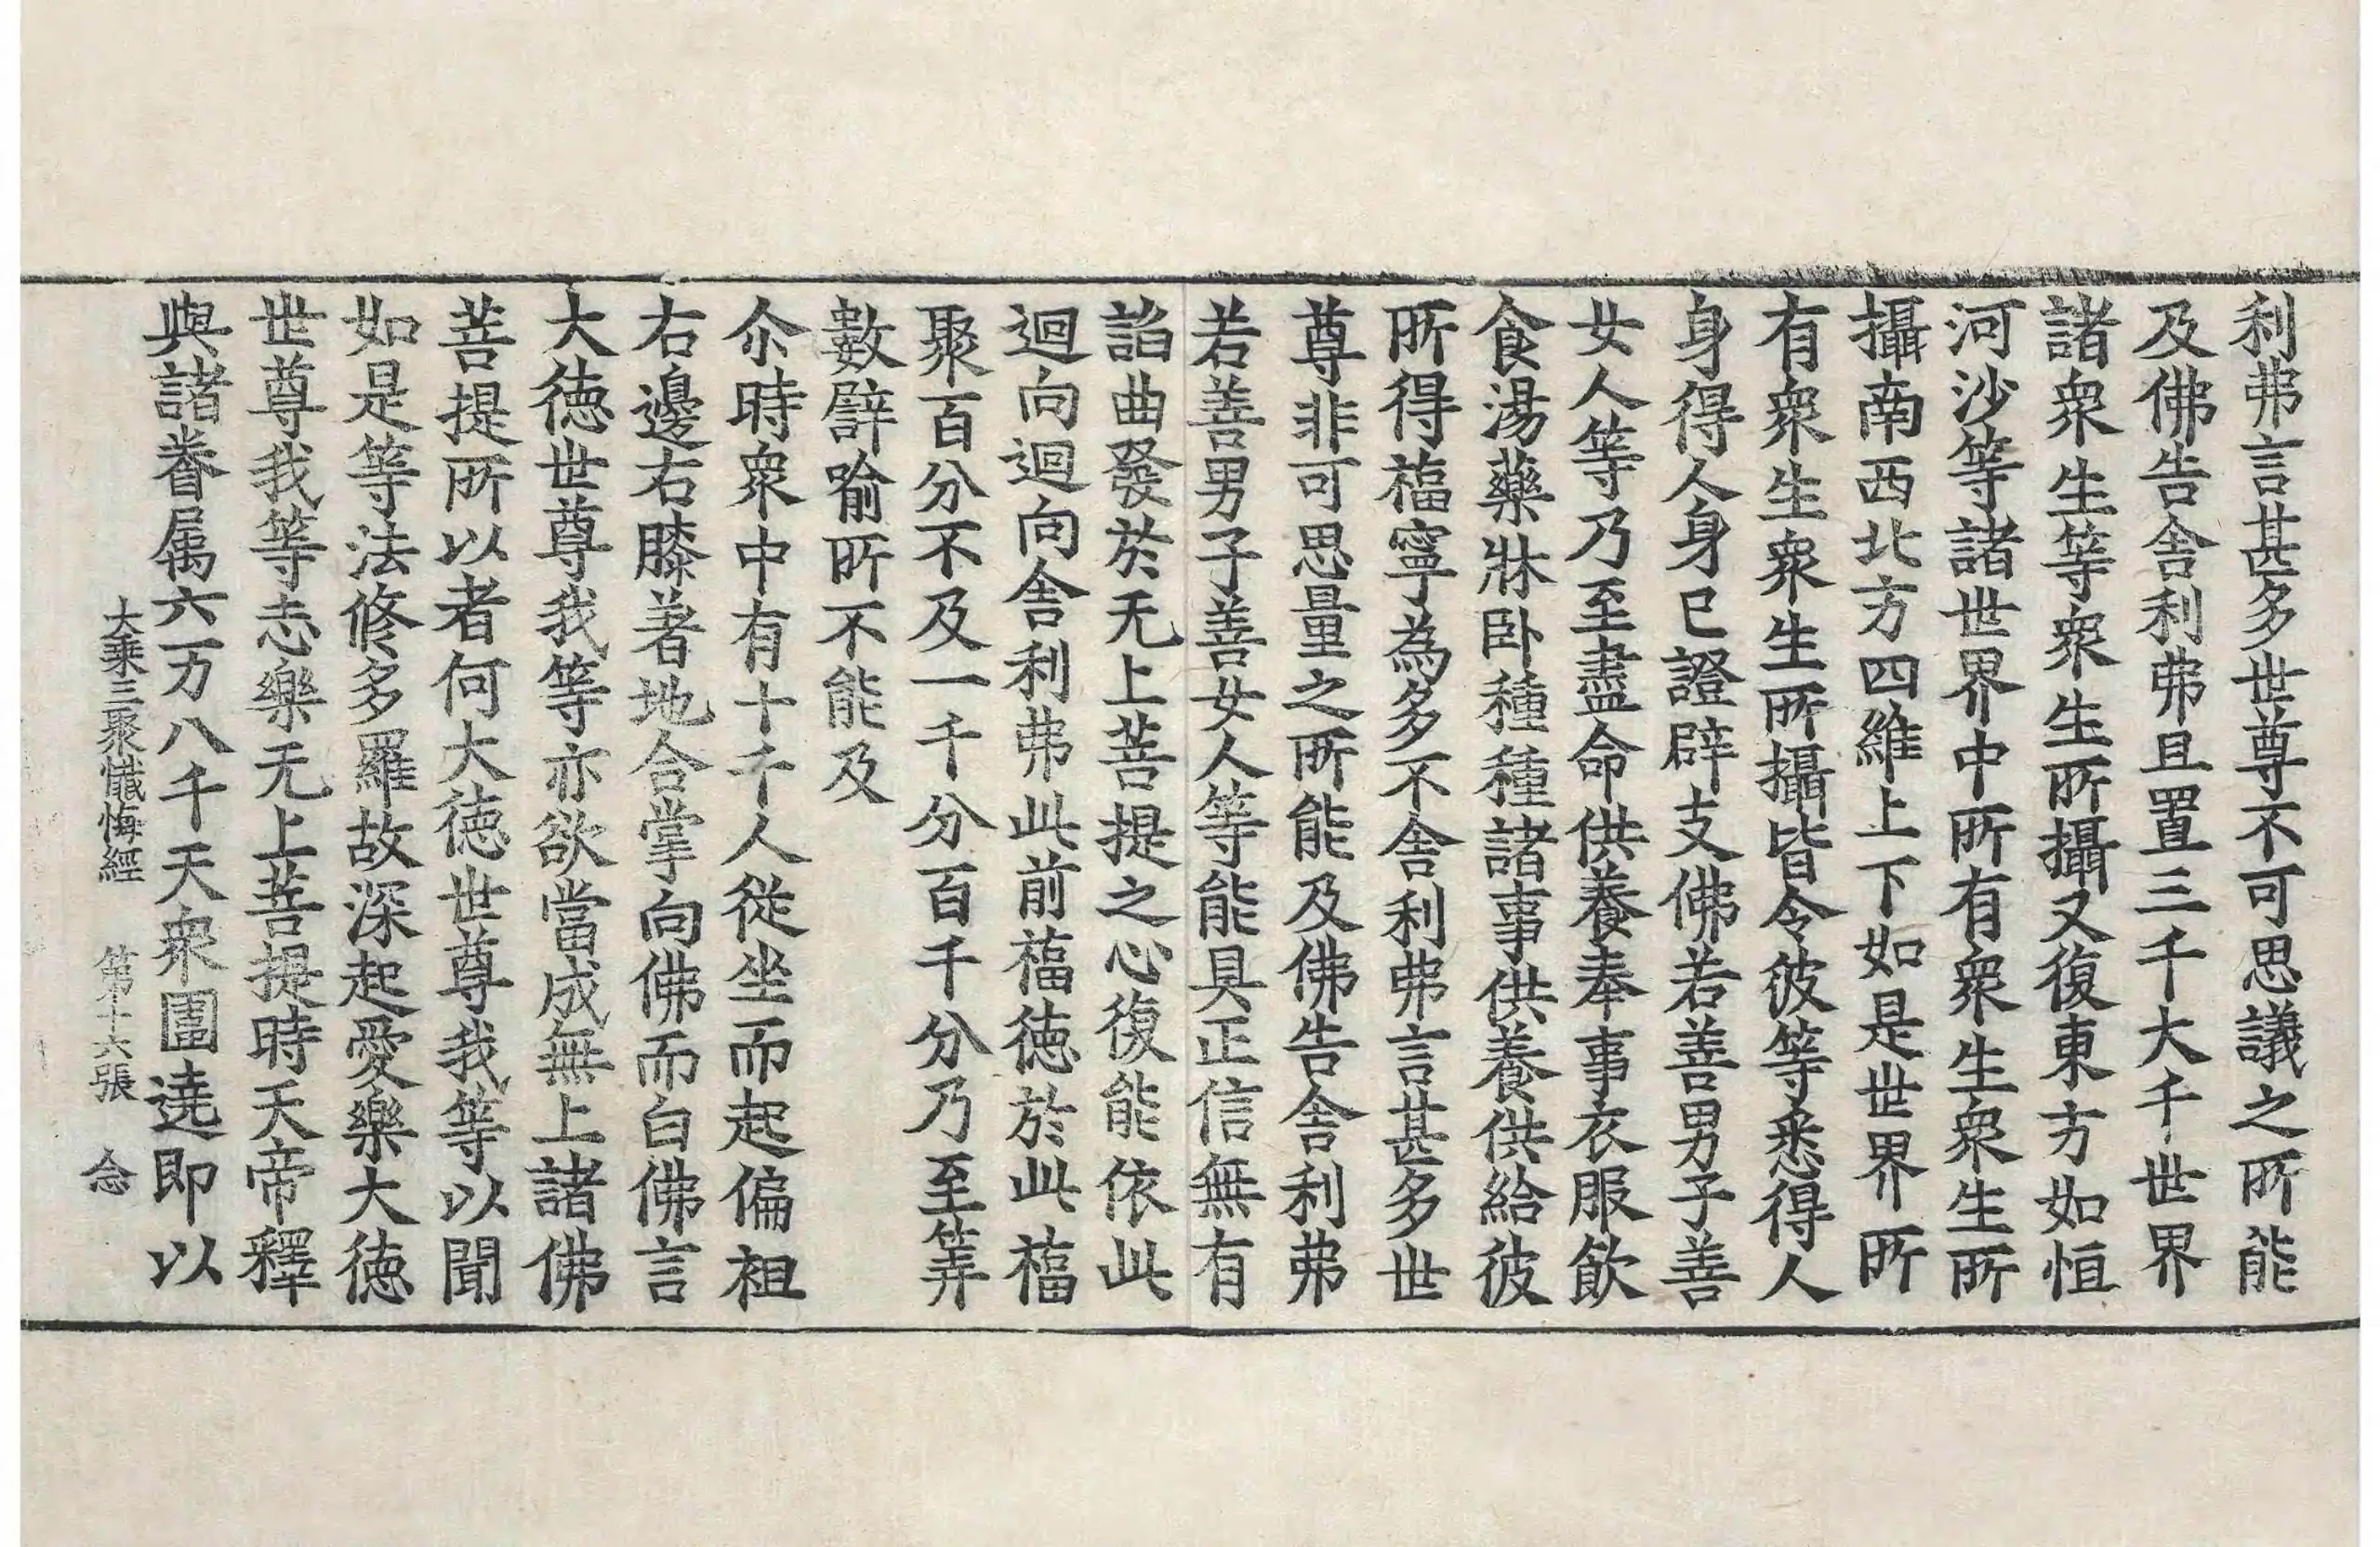 利弗言甚多世尊不可思議之所能
及佛告舍利弗且置三千大千世界
諸衆生等衆生所攝又復東方如恒
河沙等諸世界中所有衆生衆生所
攝南西北方四維上下如是世界所
有衆生衆生所攝皆令彼等悉得人
身得人身已證辟支佛若善男子善
女人等乃至盡命供養奉事衣服飲
食湯藥牀卧種種諸事供養供給彼
所得福寧為多不舍利弗言甚多世
尊非可思量之所能及佛告舍利弗
若善男子善女人等能具正信無有
諂曲發於无上菩提之心復能依此
迴向迴向舍利弗此前福德於此福
聚百分不及一千分百千分乃至筭
數譬喻所不能及
尒時衆中有十千人從坐而起偏袒
右邊右膝著地合掌向佛而白佛言
大德世尊我等亦欲當成無上諸佛
菩提所以者何大德世尊我等以聞
如是等法修多羅故深起愛樂大德
世尊我等志樂无上菩提時天帝釋
與諸眷属六万八千天衆圍遶即以
大乘三聚懺悔經 第十六張 念